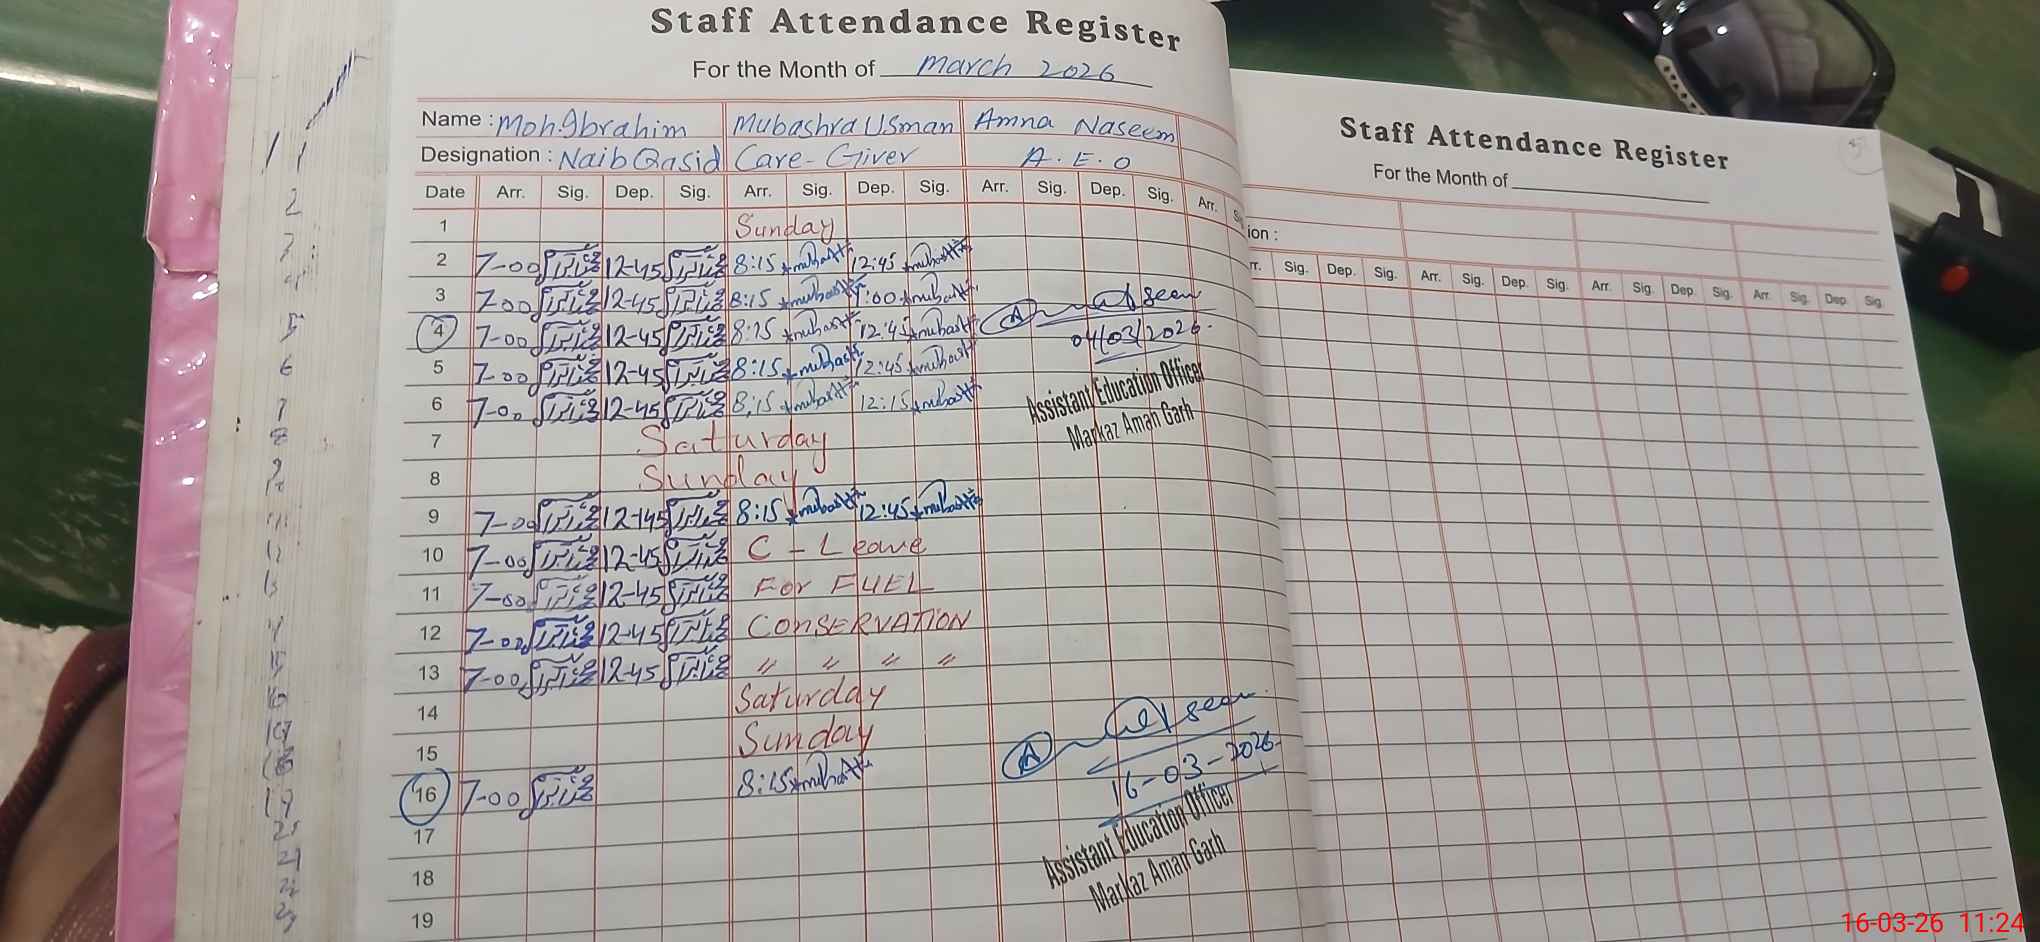 Staff Attendance Register
For the Month of March 2026
Name : Moh.Ibrahim Mubashra Usman Amna Naseem
Designation : Naib Qasid Care-Giver A.E.O
Date Arr. Sig. Dep. Sig. Arr. Sig. Dep. Sig. Arr. Sig. Dep. Sig. Arr.
1 Sunday
2 7-00 12-45 8:15 12:45
3 7-00 12-45 8:15 1:00
4 7-00 12-45 8:15 12:45 seen
04/03/2026
5 7-00 12-45 8:15 12:45
6 7-00 12-45 8:15 12:15
Assistant Education Officer
Markaz Aman Garh
7 Saturday
8 Sunday
9 7-00 12-45 8:15 12:45
10 7-00 12-45 C-Leave
11 7-00 12-45 For FUEL
12 7-00 12-45 CONSERVATION
13 7-00 12-45 〃 〃 〃 〃
14 Saturday
15 Sunday
seen
16 7-00 8:15
16-03-2026
Assistant Education Officer
Markaz Aman Garh
17
18
19
Staff Attendance Register
For the Month of
ion :
Sig. Dep. Sig. Arr. Sig. Dep. Sig. Arr. Sig. Dep. Sig. Arr. Sig. Dep. Sig.
16-03-26 11:24